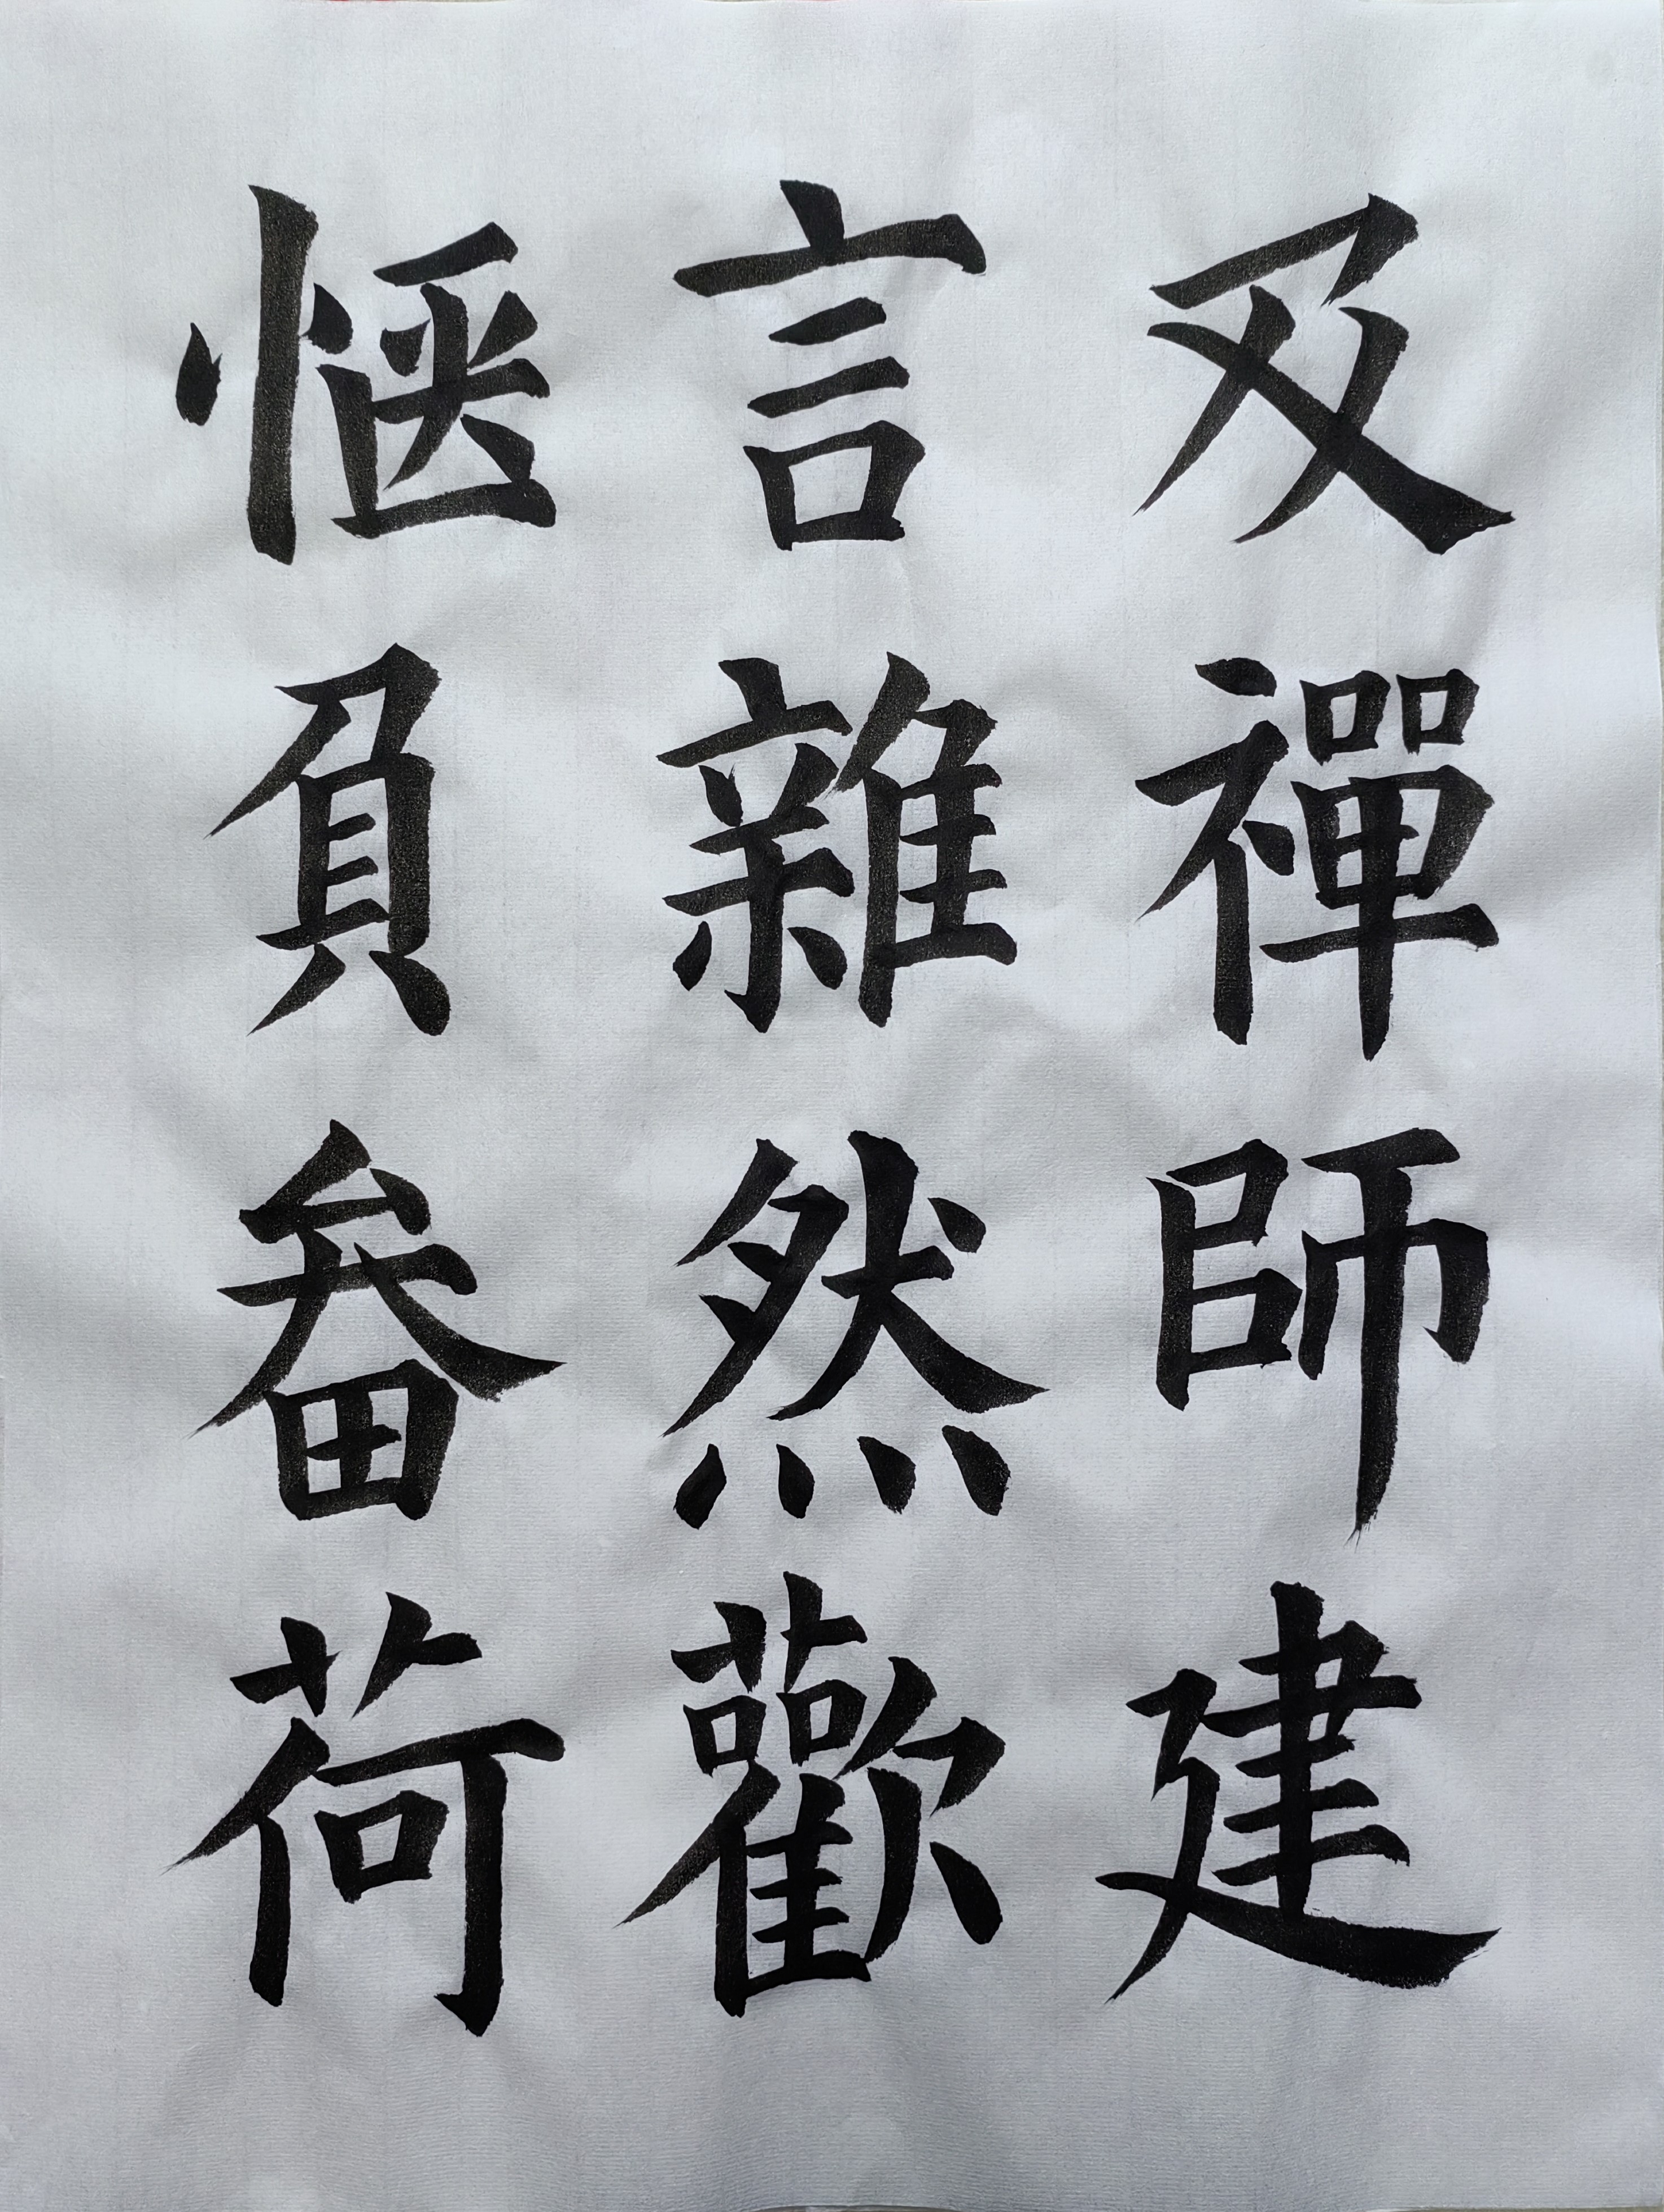 及禪師建
言雜然歡
愜負畚荷